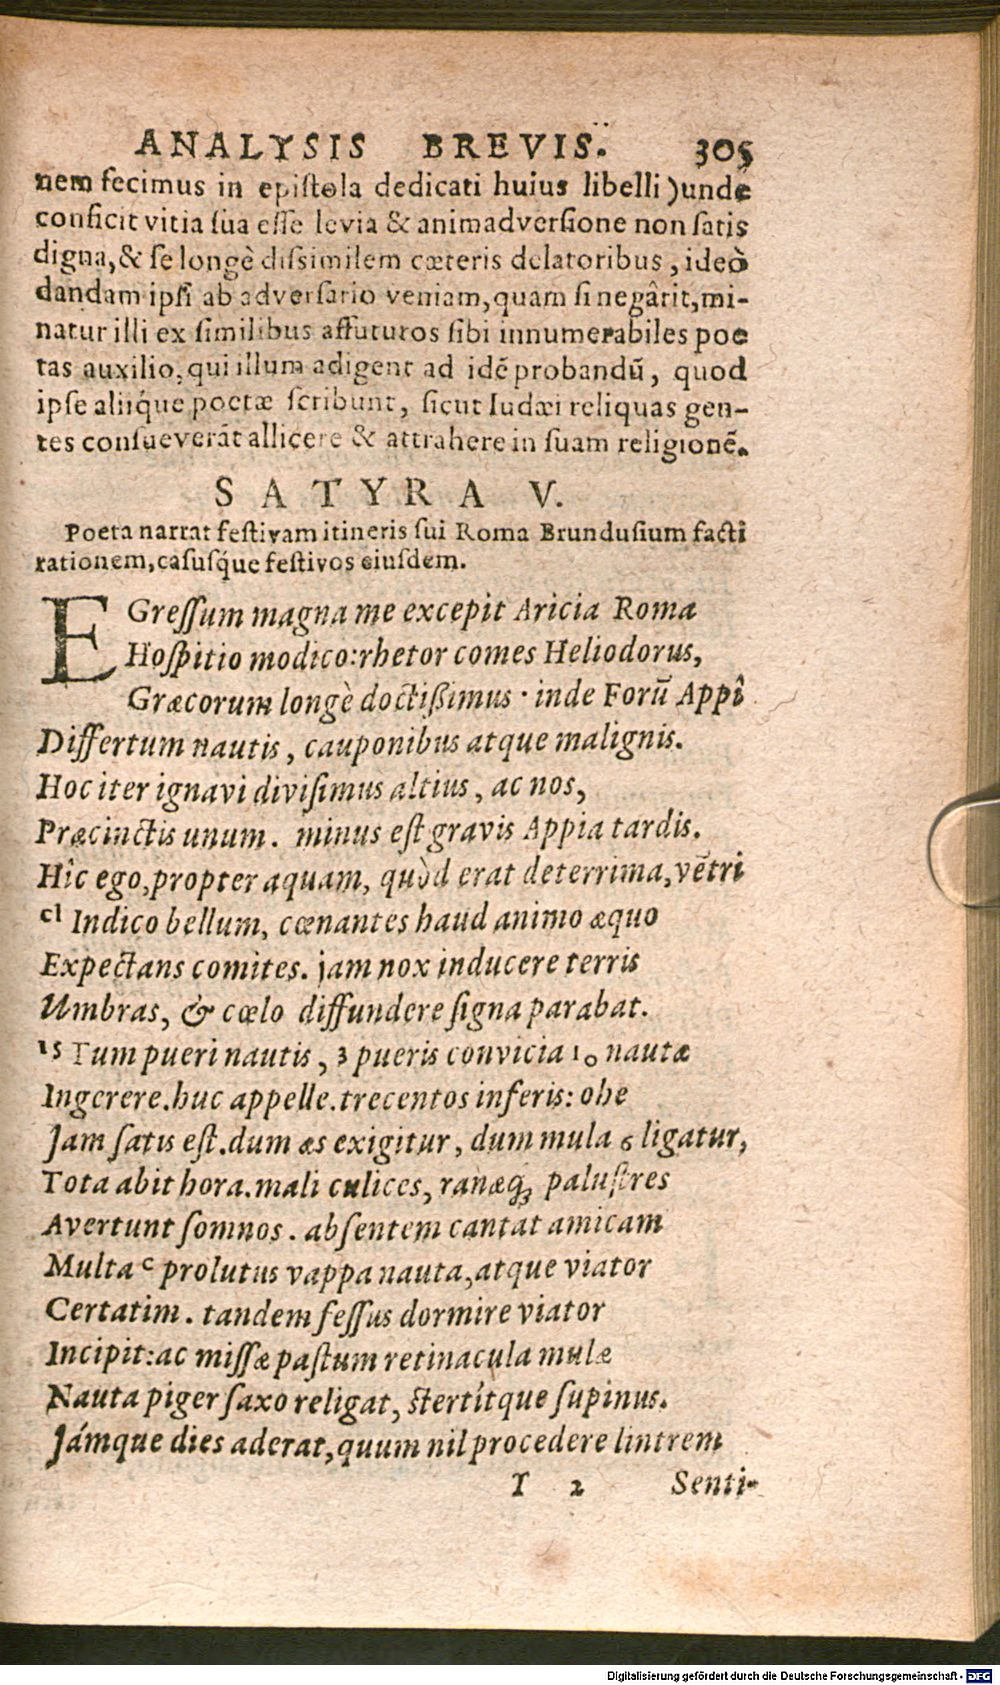 ANALYSIS BREVIS. 305
nem fecimus in epiſtola dedicati huius libelli) unde
conficit vitia ſua eſſe levia & animadverſione non ſatis
digna, & ſe longè diſsimilem cæteris delatoribus, ideò
dandam ipſi ab adverſario veniam, quam ſi negârit, mi-
natur illi ex ſimilibus affuturos ſibi innumerabiles poe
tas auxilio, qui illum adigent ad idẽ probandũ, quod
ipſe aliiq́ue poetæ ſcribunt, ſicut Iudæi reliquas gen-
tes conſueverãt allicere & attrahere in ſuam religionẽ.
SATYRA V.
Poeta narrat feſtivam itineris ſui Roma Brunduſium facti
rationem, caſuſq́ue feſtivos eiuſdem.
EGreſſum magna me excepit Aricia Roma
Hoſpitio modico: rhetor comes Heliodorus,
Græcorum longè doctißimus · inde Forũ Appî
Differtum nautis, cauponibus atque malignis.
Hoc iter ignavi diviſimus altius, ac nos,
Præcinctis unum. minus eſt gravis Appia tardis.
Hîc ego, propter aquam, quòd erat deterrima, vẽtri
cl Indico bellum, cœnantes haud animo æquo
Expectans comites. jam nox inducere terris
Umbras, & cœlo diffundere ſigna parabat.
15 Tum pueri nautis, 3 pueris convicia 10 nautæ
Ingerere. huc appelle. trecentos inferis: ohe
Jam ſatis eſt. dum æs exigitur, dum mula 6 ligatur,
Tota abit hora. mali culices, ranæq́; paluſtres
Avertunt ſomnos. abſentem cantat amicam
Multa c prolutus vappa nauta, atque viator
Certatim. tandem feſſus dormire viator
Incipit: ac miſſæ paſtum retinacula mulæ
Nauta piger ſaxo religat, ſtertítque ſupinus.
Jámque dies aderat, quum nil procedere lintrem
T 2 Senti-
Digitalisierung gefördert durch die Deutsche Forschungsgemeinschaft - DFG